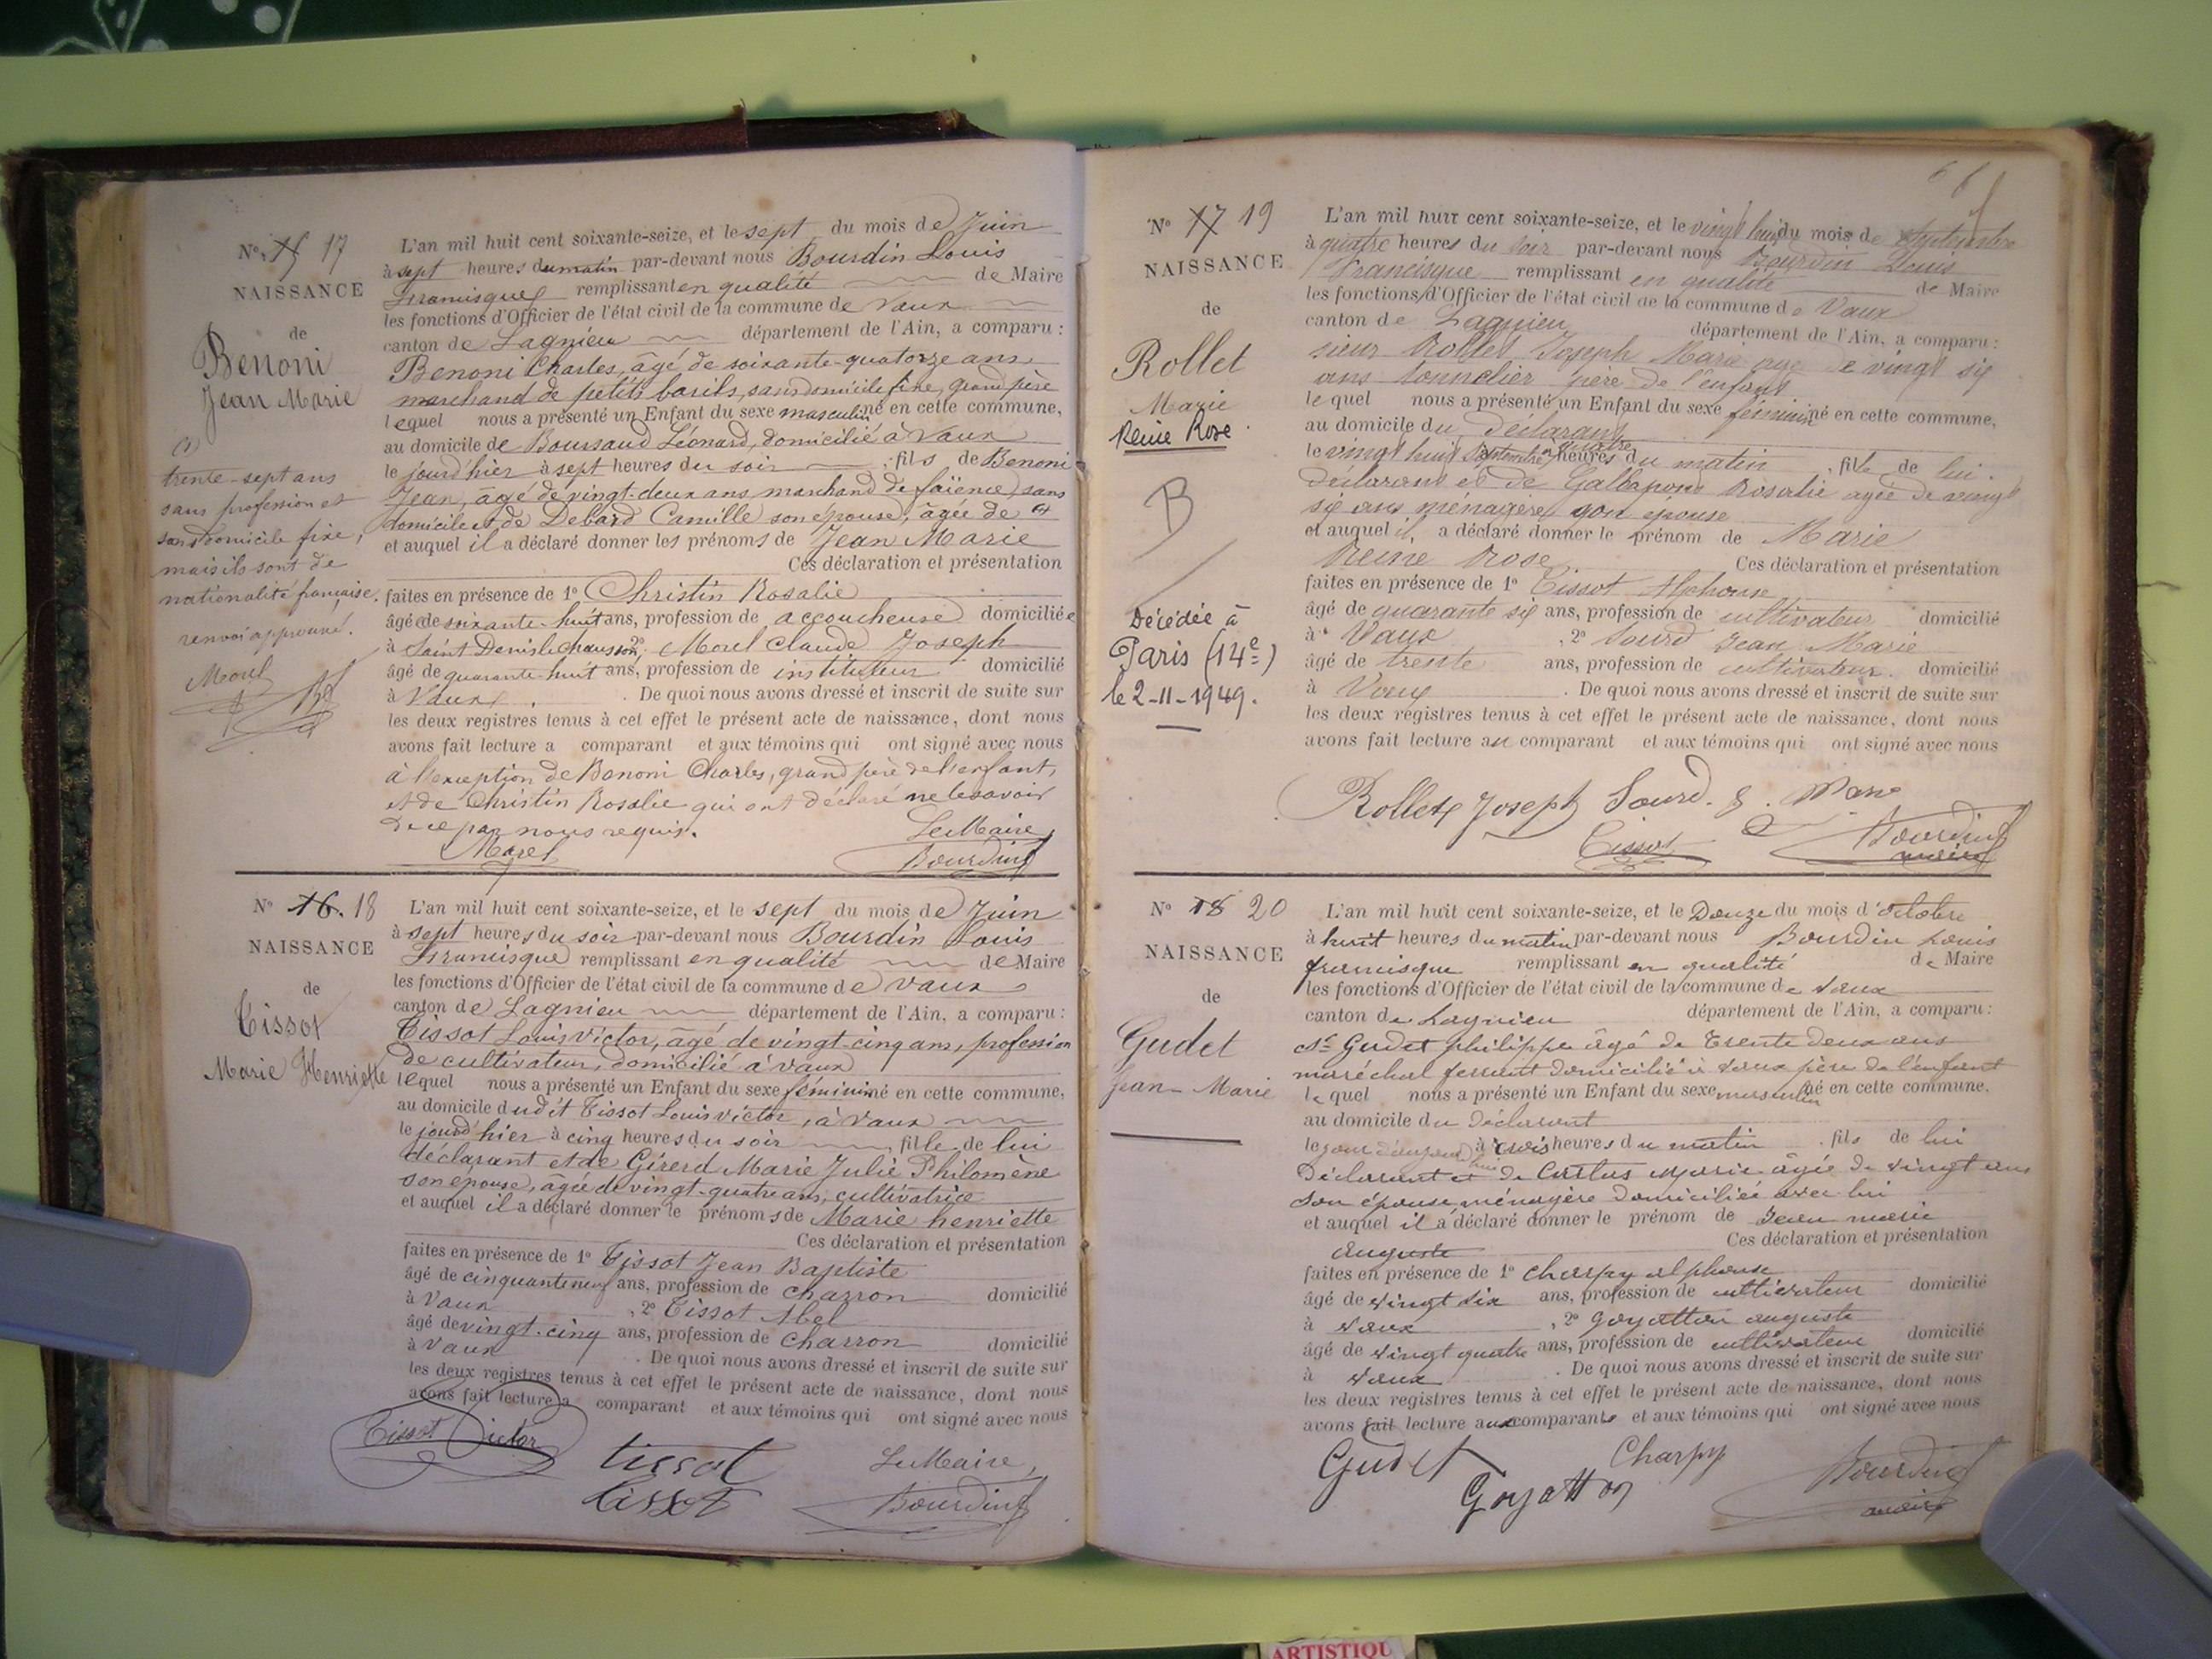 N° 15 17
NAISSANCE
de
Benoni
Jean Marie
(1)
trente-sept ans
sans profession et
sans domicile fixe,
mais ils sont de
nationalité française.
renvoi approuvé.
Morel
L'an mil huit cent soixante-seize, et le sept du mois de Juin
à sept heures du matin par-devant nous Bourdin Louis
Francisque remplissant en qualité de Maire
les fonctions d'Officier de l'état civil de la commune de Vaux
canton de Lagnieu département de l'Ain, a comparu :
Benoni Charles, âgé de soixante-quatorze ans
marchand de petits barils, sans domicile fixe, grand père
lequel nous a présenté un Enfant du sexe masculin né en cette commune,
au domicile de Boursaud Léonard, domicilié à Vaux
le jourd'hier à sept heures du soir , fils de Benoni
Jean, âgé de vingt-deux ans, marchand de faïence, sans
domicile et de Debard Camille son épouse, âgée de (1)
et auquel il a déclaré donner les prénoms de Jean Marie
Ces déclaration et présentation
faites en présence de 1° Christin Rosalie
âgée de soixante-huit ans, profession de accoucheuse domiciliée
à Saint Denis le chausson, 2° Morel Claude Joseph
âgé de quarante-huit ans, profession de instituteur domicilié
à Vaux . De quoi nous avons dressé et inscrit de suite sur
les deux registres tenus à cet effet le présent acte de naissance, dont nous
avons fait lecture a comparant et aux témoins qui ont signé avec nous
à l'exception de Benoni Charles, grand père de l'enfant,
et de Christin Rosalie qui ont déclaré ne le savoir
de ce par nous requis. Le Maire,
Morel Bourdin
N° 16. 18
NAISSANCE
de
Tissot
Marie Henriette
L'an mil huit cent soixante-seize, et le sept du mois de Juin
à sept heures du soir par-devant nous Bourdin Louis
Francisque remplissant en qualité de Maire
les fonctions d'Officier de l'état civil de la commune de Vaux
canton de Lagnieu département de l'Ain, a comparu :
Tissot Louis Victor, âgé de vingt-cinq ans, profession
de cultivateur, domicilié à Vaux
lequel nous a présenté un Enfant du sexe féminin né en cette commune,
au domicile dudit Tissot Louis Victor, à Vaux
le jourd'hier à cinq heures du soir , fille de lui
déclarant et de Girerd Marie Julie Philomène
son épouse, âgée de vingt-quatre ans, cultivatrice
et auquel il a déclaré donner le prénoms de Marie henriette
Ces déclaration et présentation
faites en présence de 1° Tissot Jean Baptiste
âgé de cinquante neuf ans, profession de charron domicilié
à Vaux , 2° Tissot Abel
âgé de vingt-cinq ans, profession de Charron domicilié
à Vaux . De quoi nous avons dressé et inscrit de suite sur
les deux registres tenus à cet effet le présent acte de naissance, dont nous
avons fait lecture a comparant et aux témoins qui ont signé avec nous
Tissot Victor tissot Le Maire,
tissot Bourdin
N° 17 19
NAISSANCE
de
Rollet
Marie
Reine Rose
B
Décédée à
Paris (14e)
le 2-11-1949.
L'an mil huit cent soixante-seize, et le vingt huit du mois de septembre
à quatre heures du soir par-devant nous Bourdin Louis
Francisque remplissant en qualité de Maire
les fonctions d'Officier de l'état civil de la commune de Vaux
canton de Lagnieu département de l'Ain, a comparu :
sieur Rollet Joseph Marie age de vingt six
ans tonnelier père de l'enfant
lequel nous a présenté un Enfant du sexe féminin né en cette commune,
au domicile du déclarant
le vingt huit septembre à quatre heures du matin , fille de lui
déclarant et de Rosalie agée de vingt
six ans ménagère son épouse
et auquel il a déclaré donner le prénom de Marie
Reine Rose Ces déclaration et présentation
faites en présence de 1° Tissot Alphonse
âgé de quarante six ans, profession de cultivateur domicilié
à Vaux , 2° Sourd Jean Marie
âgé de trente ans, profession de cultivateur. domicilié
à Vaux . De quoi nous avons dressé et inscrit de suite sur
les deux registres tenus à cet effet le présent acte de naissance, dont nous
avons fait lecture au comparant et aux témoins qui ont signé avec nous
Rollet Joseph Sourd. J. Marie
Tissot Bourdin
maire
N° 18 20
NAISSANCE
de
Gudet
Jean-Marie
L'an mil huit cent soixante-seize, et le Douze du mois d'octobre
à huit heures du matin par-devant nous Bourdin Louis
francisque remplissant en qualité de Maire
les fonctions d'Officier de l'état civil de la commune de Vaux
canton de Lagnieu département de l'Ain, a comparu :
Sr Gudet philippe âgé de Trente deux ans
maréchal ferrant domicilié à Vaux père de l'enfant
lequel nous a présenté un Enfant du sexe masculin né en cette commune,
au domicile du déclarant
le jour à trois heures du matin , fils de lui
Déclarant et de Marie âgée de vingt ans
son épouse, ménagère domiciliée avec lui
et auquel il a déclaré donner le prénom de Jean marie
auguste Ces déclaration et présentation
faites en présence de 1° Charpy alphonse
âgé de vingt six ans, profession de cultivateur domicilié
à Vaux , 2° Goyatton auguste
âgé de vingt quatre ans, profession de cultivateur domicilié
à Vaux . De quoi nous avons dressé et inscrit de suite sur
les deux registres tenus à cet effet le présent acte de naissance, dont nous
avons fait lecture aux comparants et aux témoins qui ont signé avec nous
Gudet Charpy Bourdin
Goyatton maire
ARTISTIQU